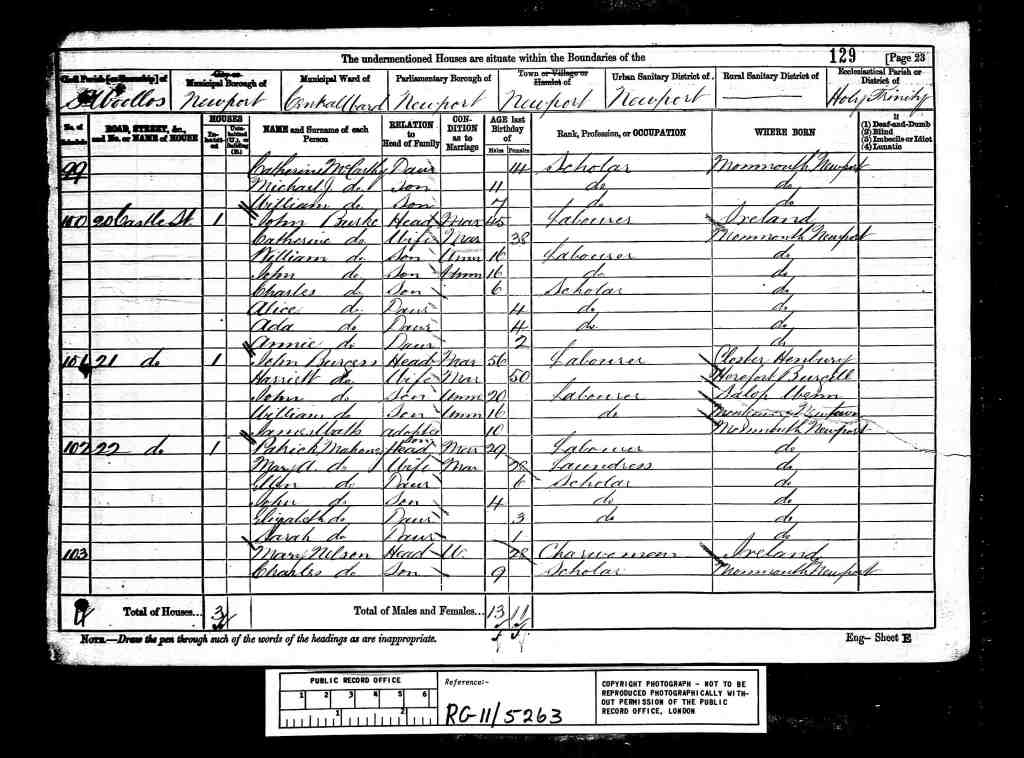 The undermentioned Houses are situate within the Boundaries of the 129 [Page 23
Civil Parish [or Township] of City or Municipal Borough of Municipal Ward of Parliamentary Borough of Town or Village or Hamlet of Urban Sanitary District of Rural Sanitary District of Ecclesiastical Parish or District of
St Woollos Newport Central Ward Newport Newport Newport Holy Trinity
No. of Schedule ROAD, STREET, &c., and No. or NAME of HOUSE HOUSES Inhabited Uninhabited (U.), or Building (B.) NAME and Surname of each Person RELATION to Head of Family CONDITION as to Marriage AGE last Birthday of Males Females Rank, Profession, or OCCUPATION WHERE BORN If (1) Deaf-and-Dumb (2) Blind (3) Imbecile or Idiot (4) Lunatic
99 Catherine McCarthy Daur 14 Scholar Monmouth Newport
Michael J. do Son 11 do do
William do Son 7 do do
100 20 Castle St. 1 John Burke Head Mar 45 Labourer Ireland
Catherine do Wife Mar 38 Monmouth Newport
William do Son Unm 16 Labourer do
John do Son Unm 16 do do
Charles do Son 6 Scholar do
Alice do Daur 4 do do
Ada do Daur 4 do do
Annie do Daur 2 do
101 21 do 1 John Burgess Head Mar 56 Labourer Gloster Henbury
Harriett do Wife Mar 50 Hereford
John do Son Unm 20 Labourer Salop Wem
William do Son Unm 16 do Newtown
James adopted son 10 Monmouth Newport
102 22 do 1 Patrick Mahoney Head Mar 29 Labourer do
Mary A. do Wife Mar 28 Laundress do
Ellen do Daur 6 Scholar do
John do Son 4 do do
Elizabeth do Daur 3 do do
Sarah do Daur 1 do
103 Mary Nelson Head W. 28 Charwoman Ireland
Charles do Son 9 Scholar Monmouth Newport
4 Total of Houses... 3 Total of Males and Females... 13 11
NOTE.—Draw the pen through such of the words of the headings as are inappropriate. Eng— Sheet E
PUBLIC RECORD OFFICE
1 2 3 4 5 6
1 2
Reference:-
RG-11/5263
COPYRIGHT PHOTOGRAPH - NOT TO BE
REPRODUCED PHOTOGRAPHICALLY WITH-
OUT PERMISSION OF THE PUBLIC
RECORD OFFICE, LONDON